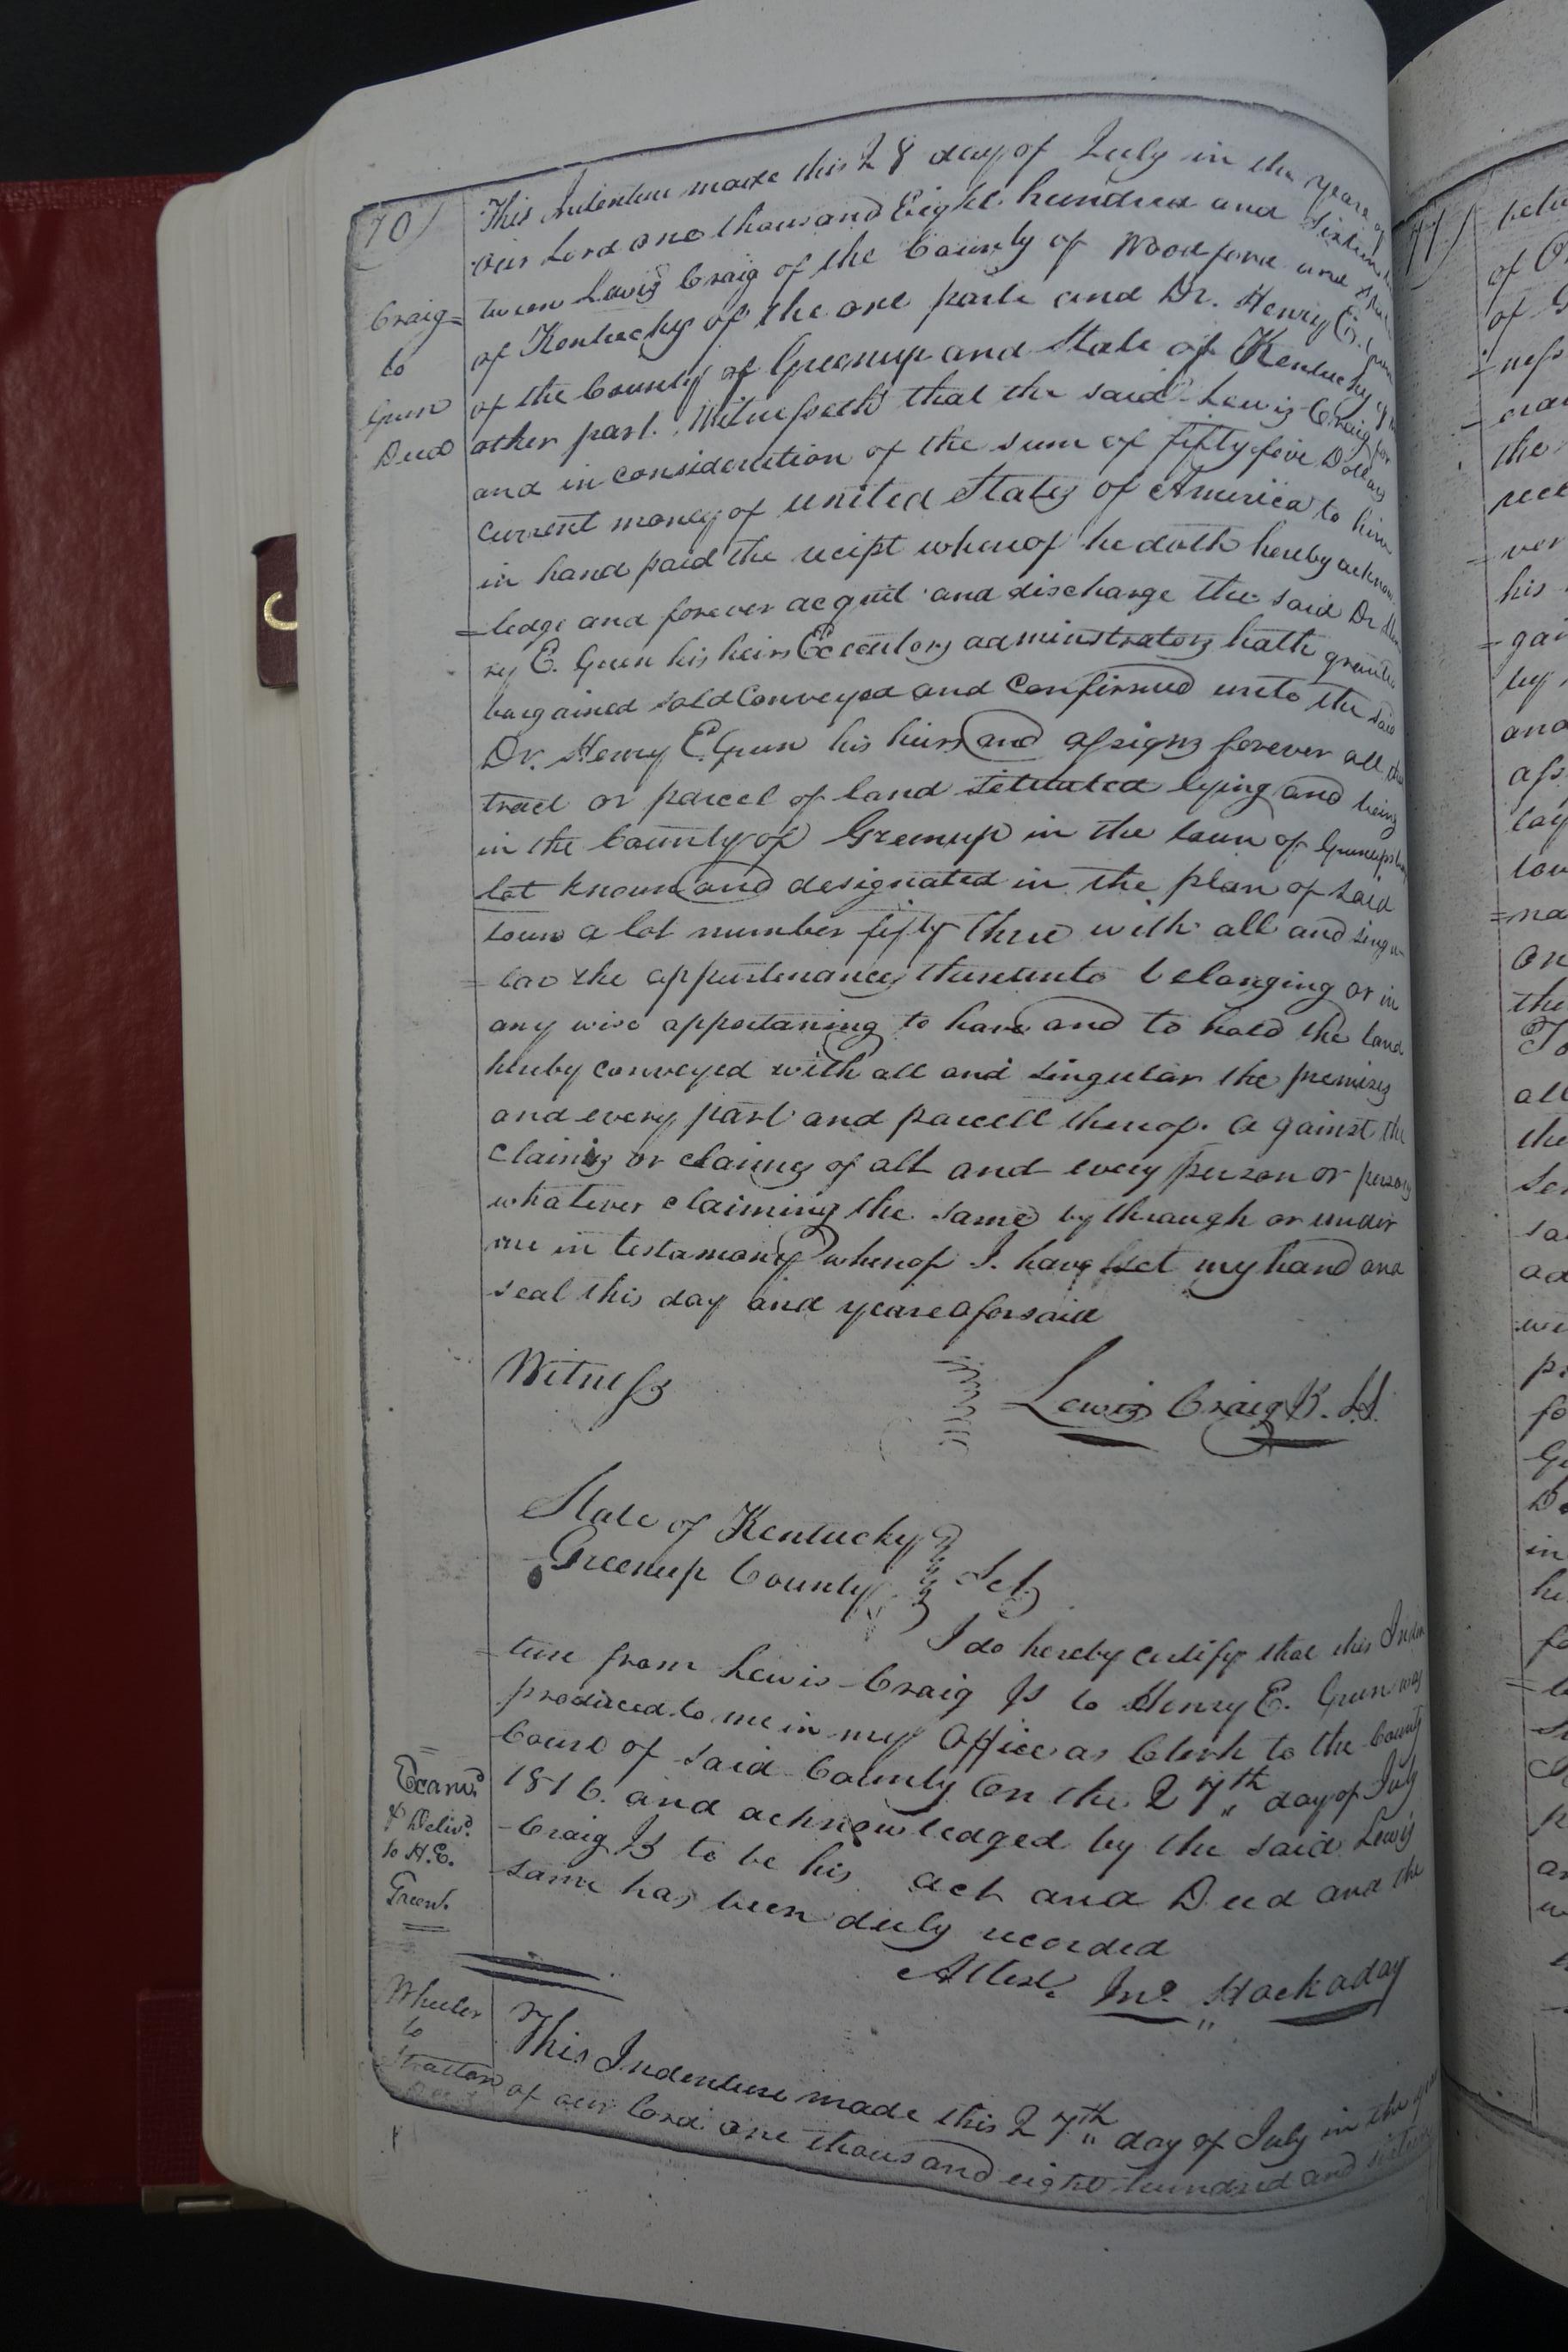 70)
Craig
to
Green
Deed
This Indenture made this 28 day of July in the yeare of
our Lord one thousand Eight hundred and Sixteen
tween Lewis Craig of the County of Woodford and State
of Kentucky of the one parte and Dr. Henry E. Green
of the County of Greenup and State of Kentucky of the
other part. Witnesseth that the said Lewis Craig for
and in consideration of the sum of fifty five Dollars
current money of united States of America to him
in hand paid the recipt whereof he doth hereby acknow
=ledge and forever acquit and discharge the said Dr Hen
ry E. Green his heirs Executors adminstrators hath granted
bargained sold Conveyed and Confirmed unto the said
Dr. Henry E. Green his heirs and assigns forever all the
tract or parcel of land situated lying and being
in the County of Greenup in the town of Greenupsburg
lot known and designated in the plan of said
town a lot number fifty three with all and singu-
=lar the appurtenances thereunto belonging or in
any wise appertaning to have and to hold the land
hereby conveyed with all and singular the premises
and every part and parcell thereof. against the
claims or claims of all and every person or persons
whatever claiming the same by through or under
me in testamony whereof I have set my hand and
seal this day and yeare aforsaid
Witness
Lewis Craig
State of Kentucky
Greenup County Sct
I do hereby certify that this Inden
=ture from Lewis Craig to Henry E. Green was
produced to me in my Office as Clerk to the County
Court of said County On the 27th day of July
1816. and acknowledged by the said Lewis
Craig to be his act and Deed and the
same has been duly recorded
Attest. Jno. Hockaday
Exam.d
& Deliv.d
to H.E.
Green.
Wheeler
to
Stratton
This Indenture made this 27th day of July in the year
of our lord one thousand eight hundred and sixteen
71)